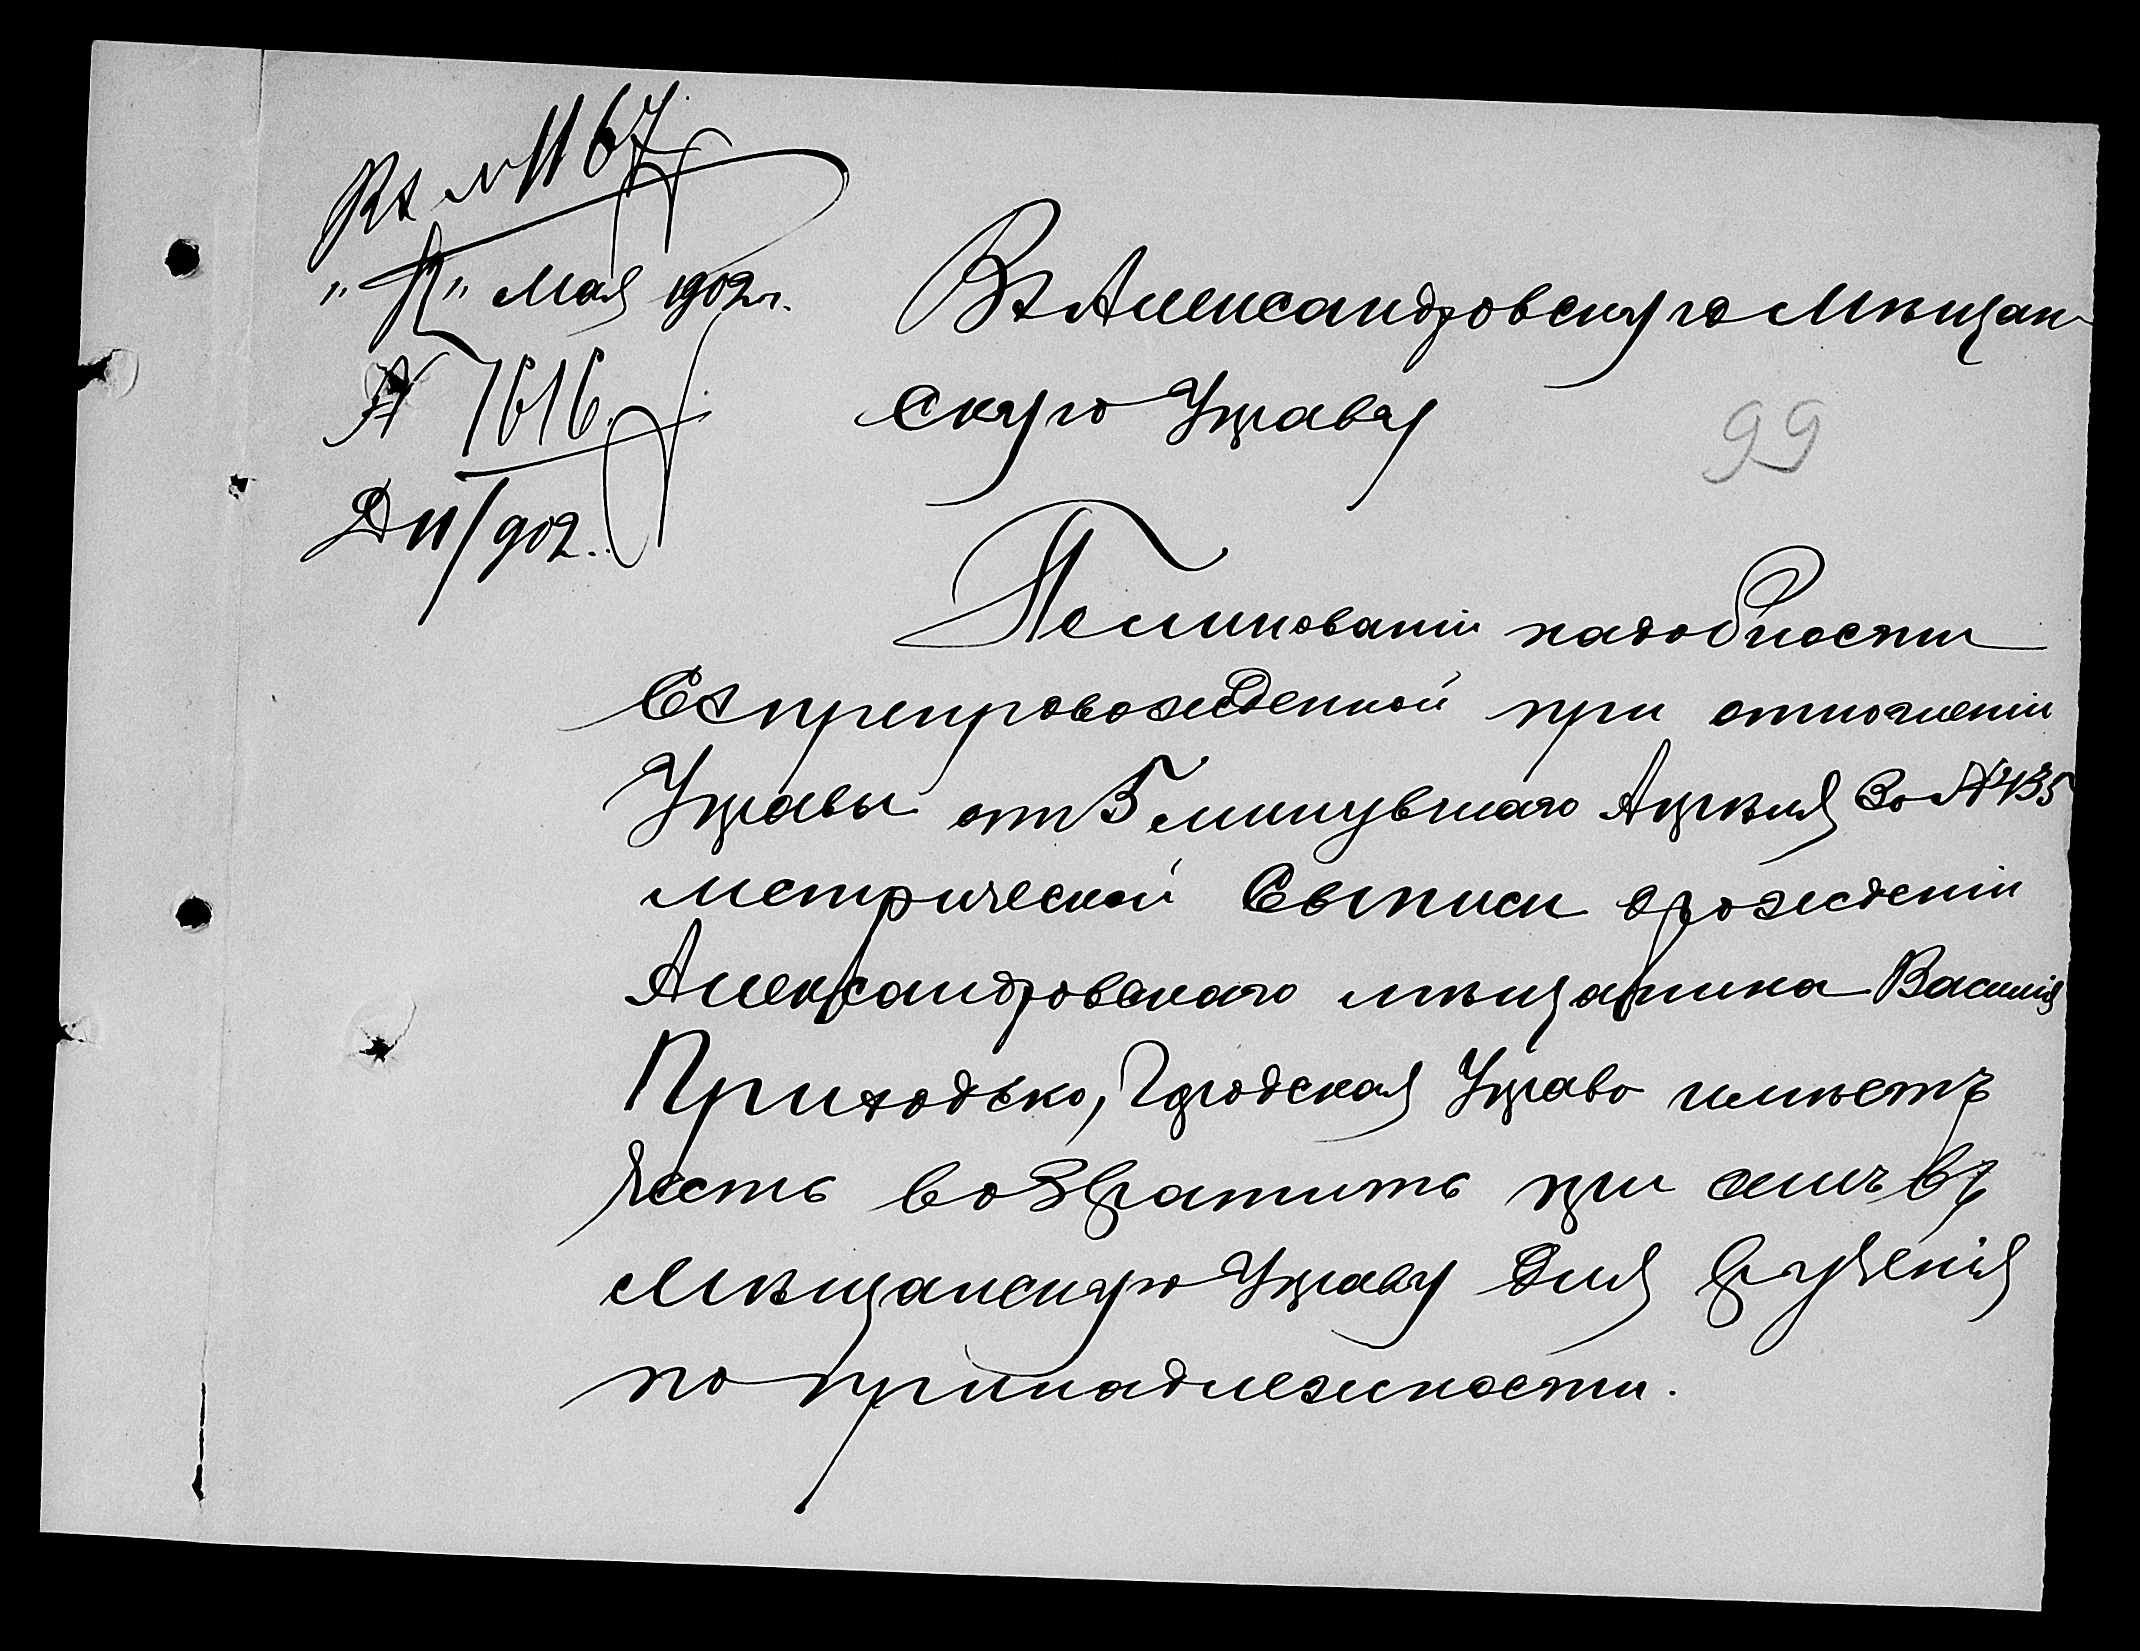 Вх №1167
"12" Мая 1902 г.
№ 1616.
Д 11/902.
Въ Александровскую Мѣщан-
скую Управу
99
По минованіи надобности
въ препровожденной при отношеніи
Управы отъ 5 минувшаго Апрѣля за №435
метрической выписи о рожденіи
Александровскаго мѣщанина Василія
Приходько, Городская Управа имѣетъ
честь возвратить при семъ въ
Мѣщанскую Управу для врученія
по принадлежности.